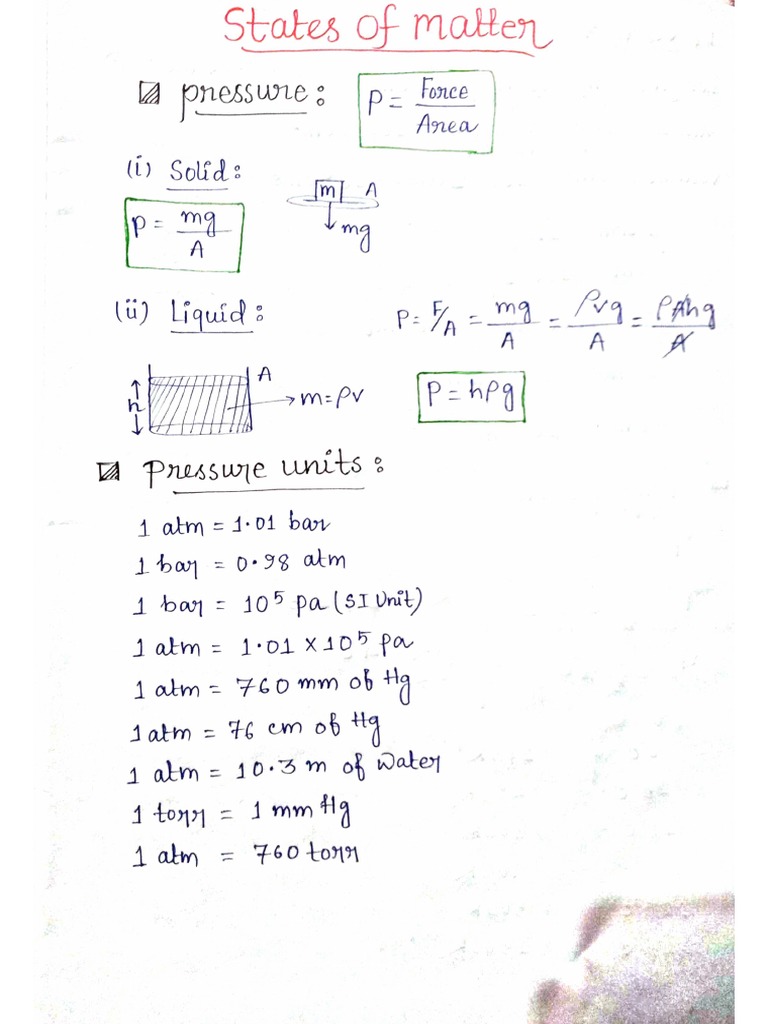 States of matter
pressure:
P = Force / Area
(i) Solid:
m A
mg
P = mg / A
(ii) Liquid:
P = F/A = mg / A = ρvg / A = ρAhg / A
h
A
m = ρv
P = hρg
Pressure units:
1 atm = 1.01 bar
1 bar = 0.98 atm
1 bar = 10⁵ pa (SI Unit)
1 atm = 1.01 × 10⁵ pa
1 atm = 760 mm of Hg
1 atm = 76 cm of Hg
1 atm = 10.3 m of water
1 torr = 1 mm Hg
1 atm = 760 torr